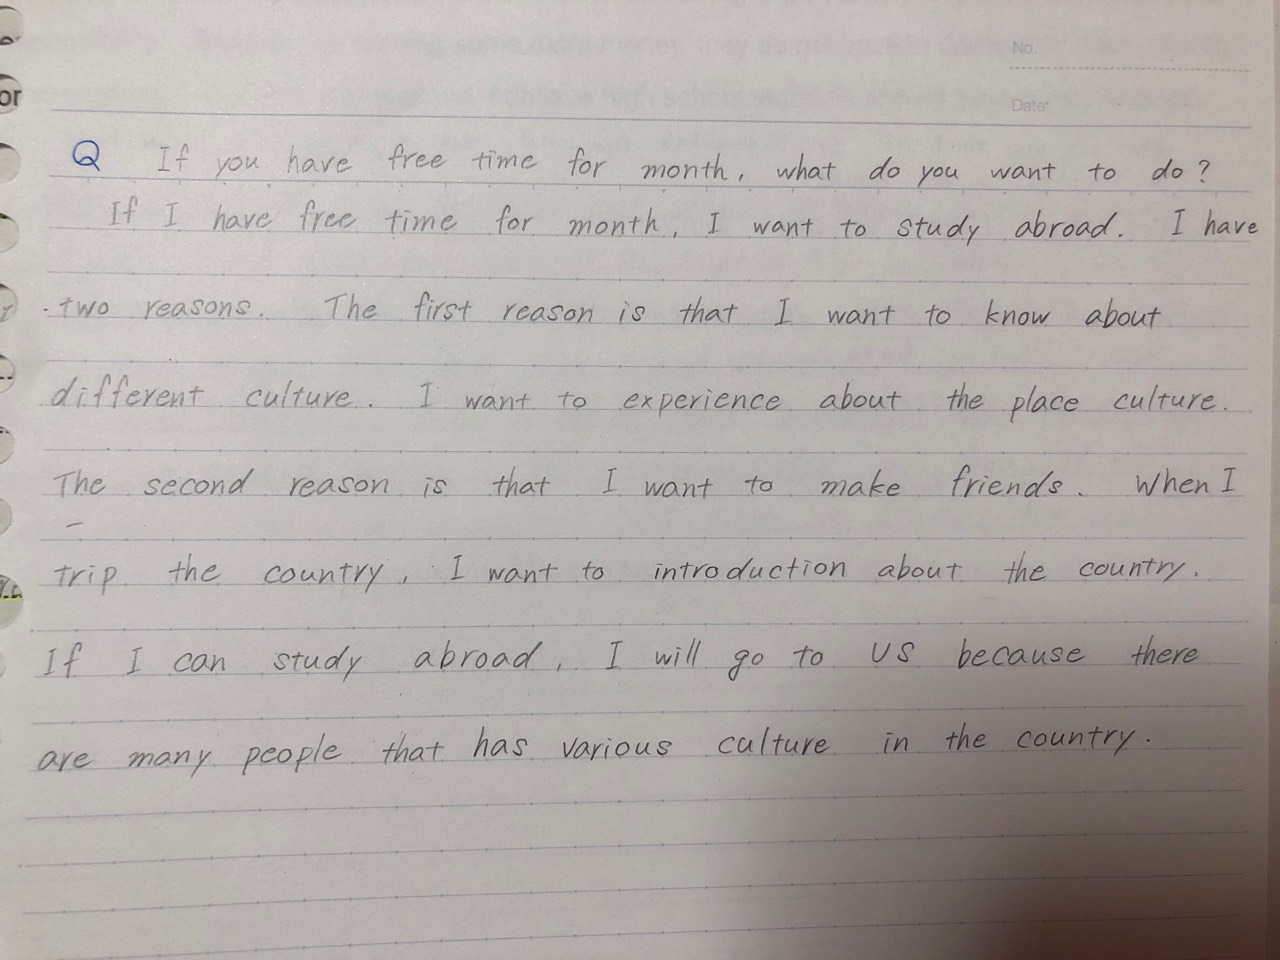 or
No.
Date
Q If you have free time for month, what do you want to do?
If I have free time for month, I want to study abroad. I have
two reasons. The first reason is that I want to know about
different culture. I want to experience about the place culture.
The second reason is that I want to make friends. When I
trip the country, I want to introduction about the country.
If I can study abroad, I will go to US because there
are many people that has various culture in the country.